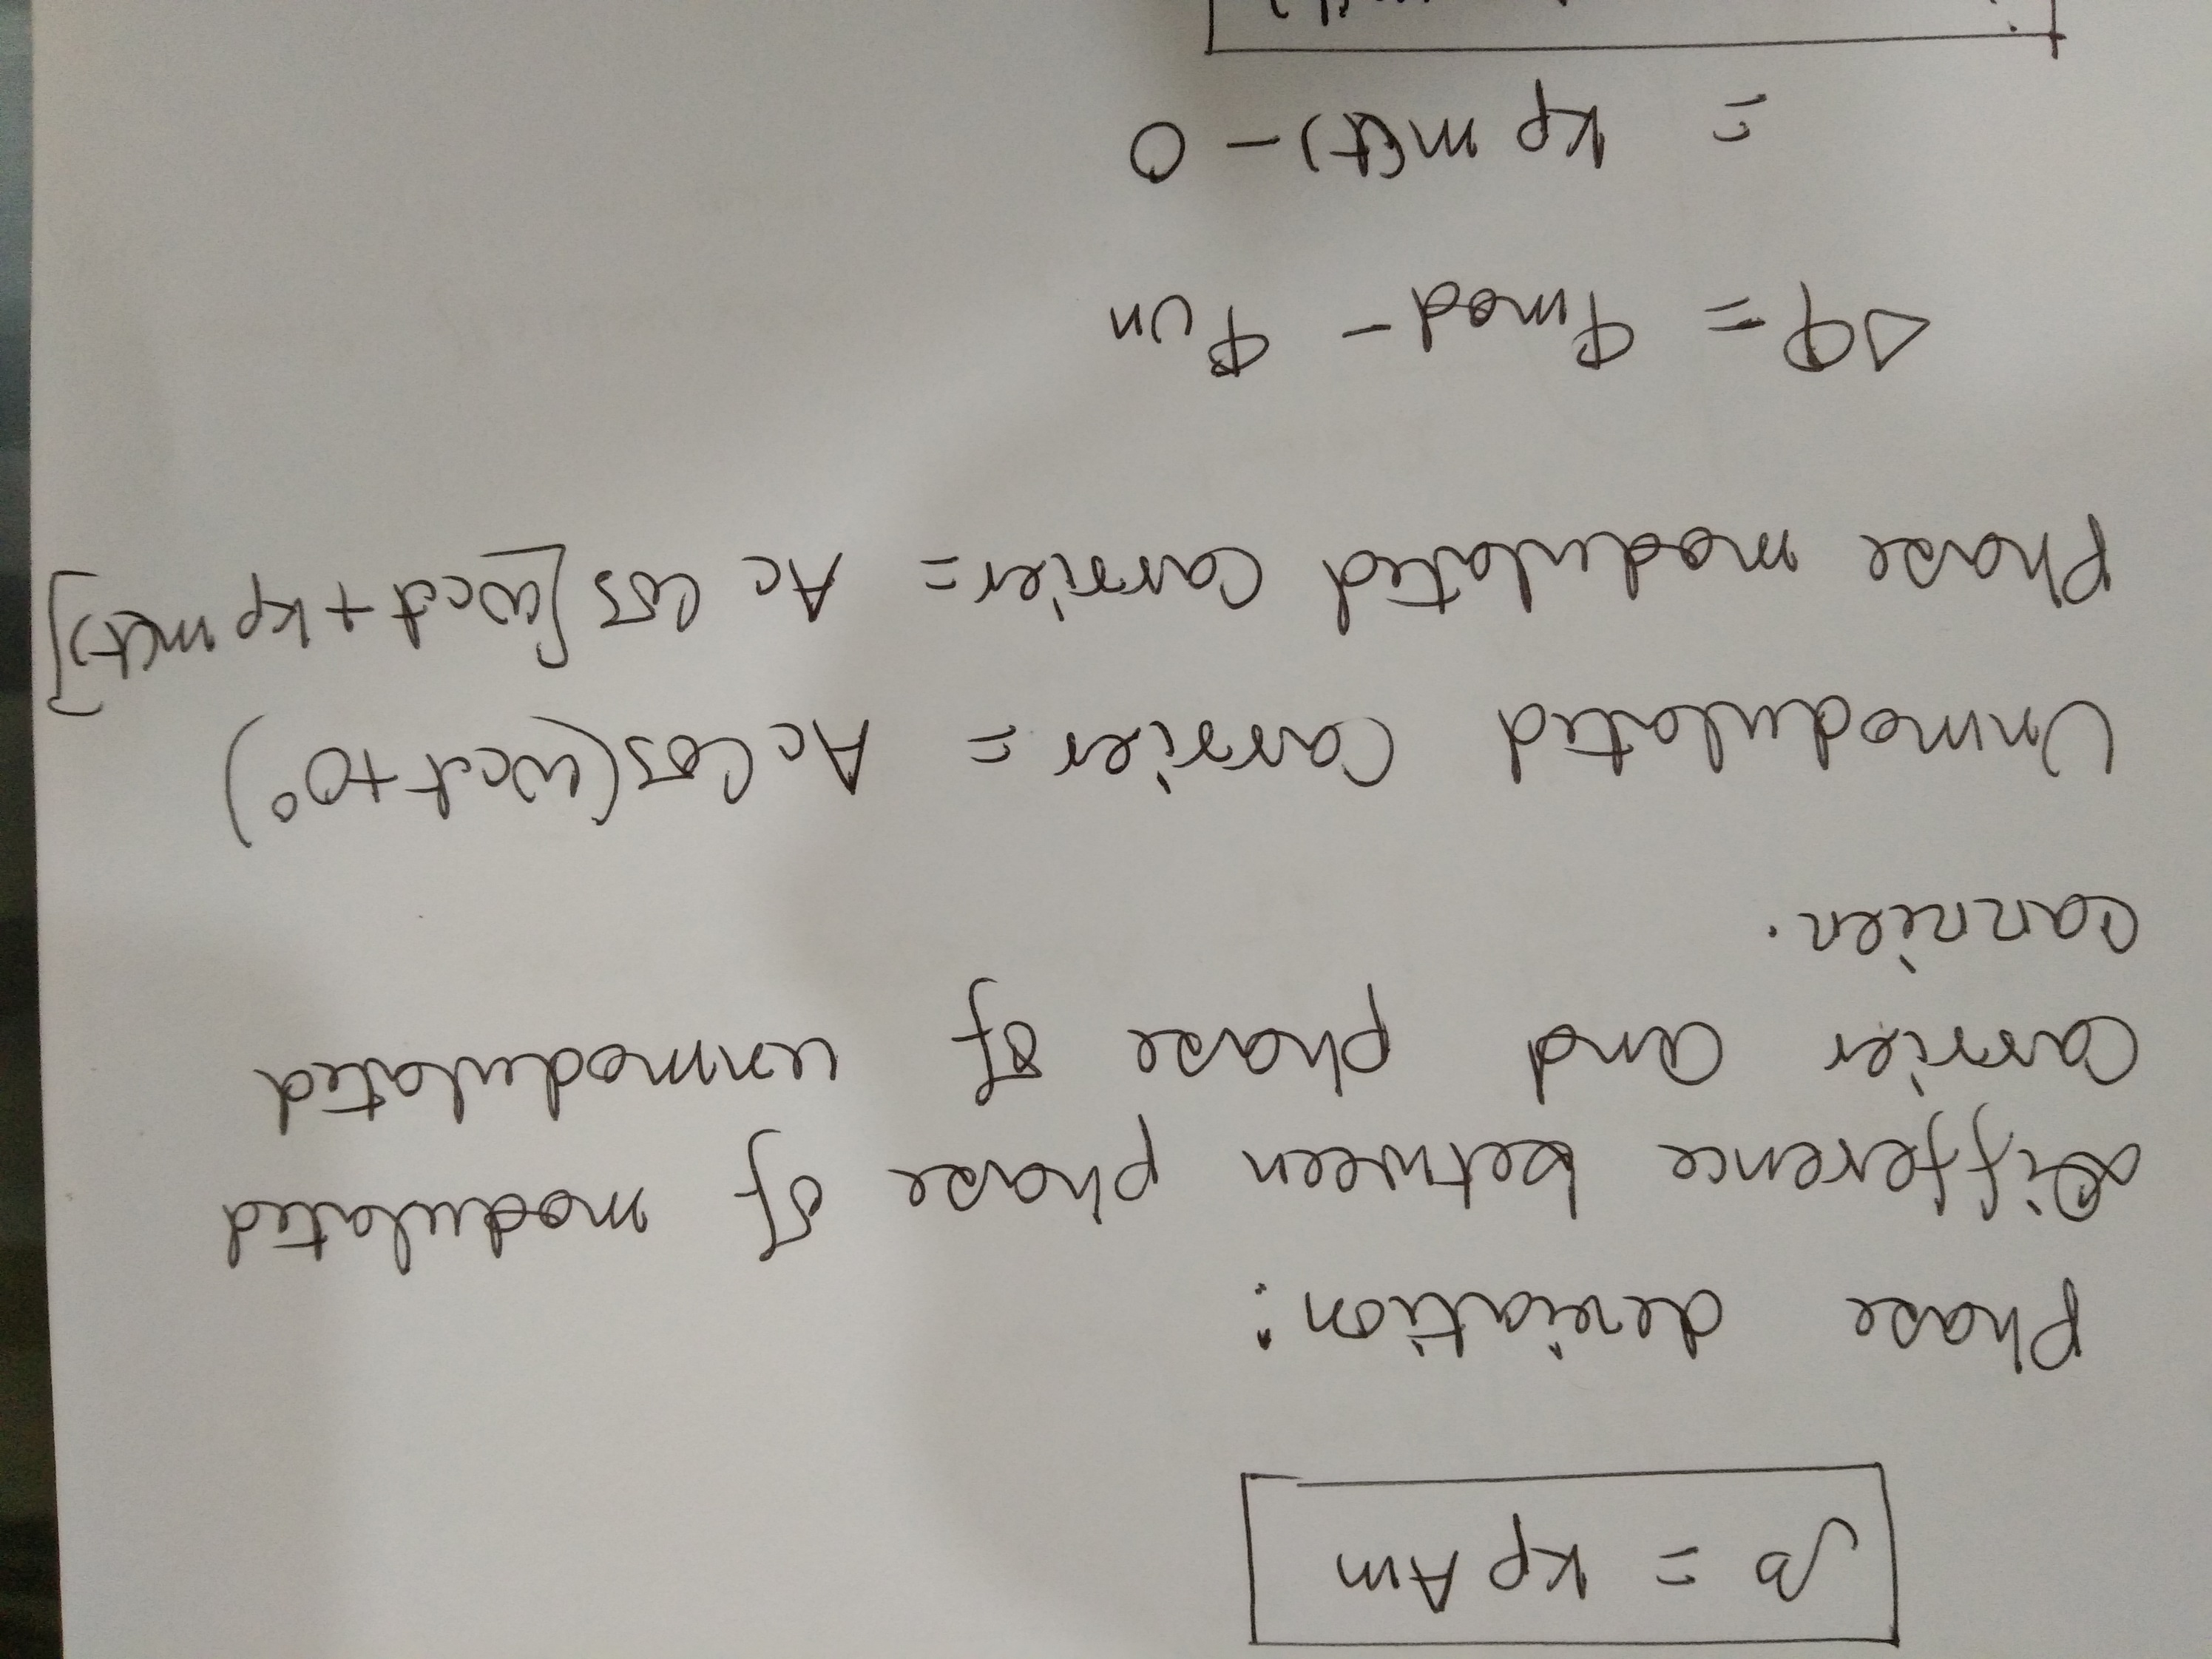 β = kp Am
Phase deviation:
difference between phase of modulated
carrier and phase of unmodulated
carrier.
Unmodulated carrier = Ac Cos(ωct + 0°)
Phase modulated carrier = Ac Cos[ωct + kp m(t)]
Δφ = φmod - φun
= kp m(t) - 0